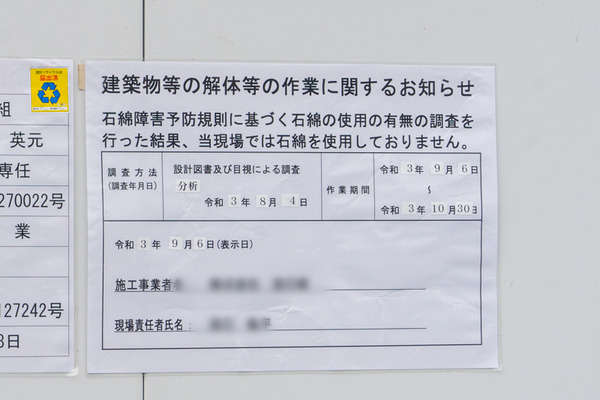 建設リサイクル法
届出済
組
英元
専任
270022号
業
127242号
3日
建築物等の解体等の作業に関するお知らせ
石綿障害予防規則に基づく石綿の使用の有無の調査を
行った結果、当現場では石綿を使用しておりません。
調査方法
(調査年月日)
設計図書及び目視による調査
分析
令和 3年 8月 4日
作業期間
令和 3年 9月 6日
~
令和 3年 10月30日
令和 3年 9月 6日(表示日)
施工事業者
現場責任者氏名: